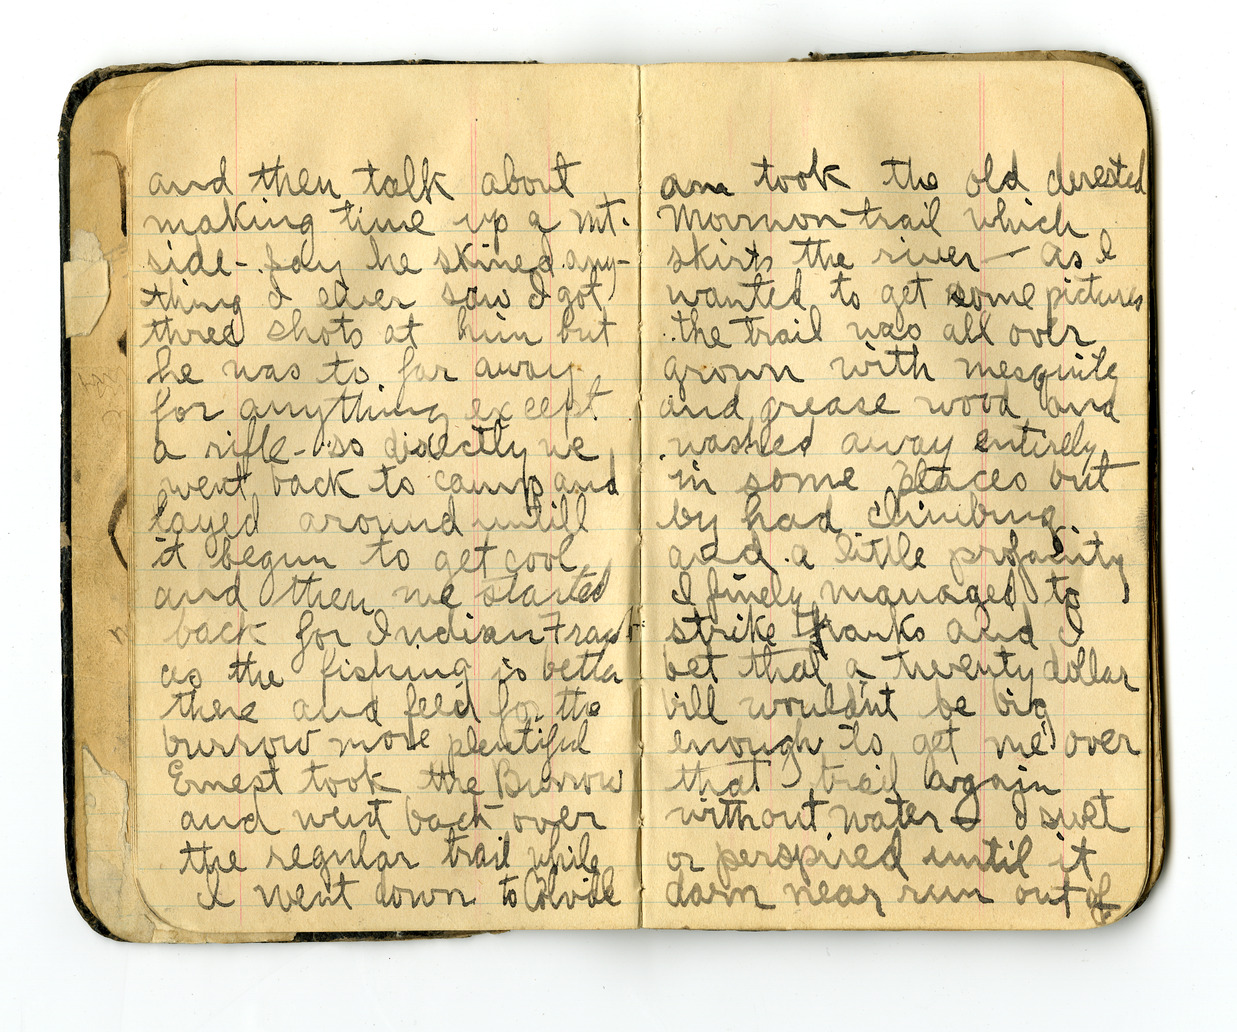 and then talk about
making time up a Mt.
side - say he skined any-
thing I ever saw I got
three shots at him but
he was to far away
for anything except
a rifle - so directly we
went back to camp and
layed around untill
it begun to get cool
and then we started
back for Indian
as the fishing is better
there and feed for the
burrow more plentiful
Ernest took the Burrow
and went back over
the regular trail while
I went down to Colville
am took the old derested
Mormon trail which
skirts the river - As I
wanted to get some pictures
the trail was all over
grown with mesquite
and grease wood and
washed away entirely
in some places but
by had climbing
and a little profanity
I finely managed to
strike Franks and I
bet that a twenty dollar
bill wouldn't be big
enough to get me over
that trail again
without water - I swet
or perspired until it
darn near run out of